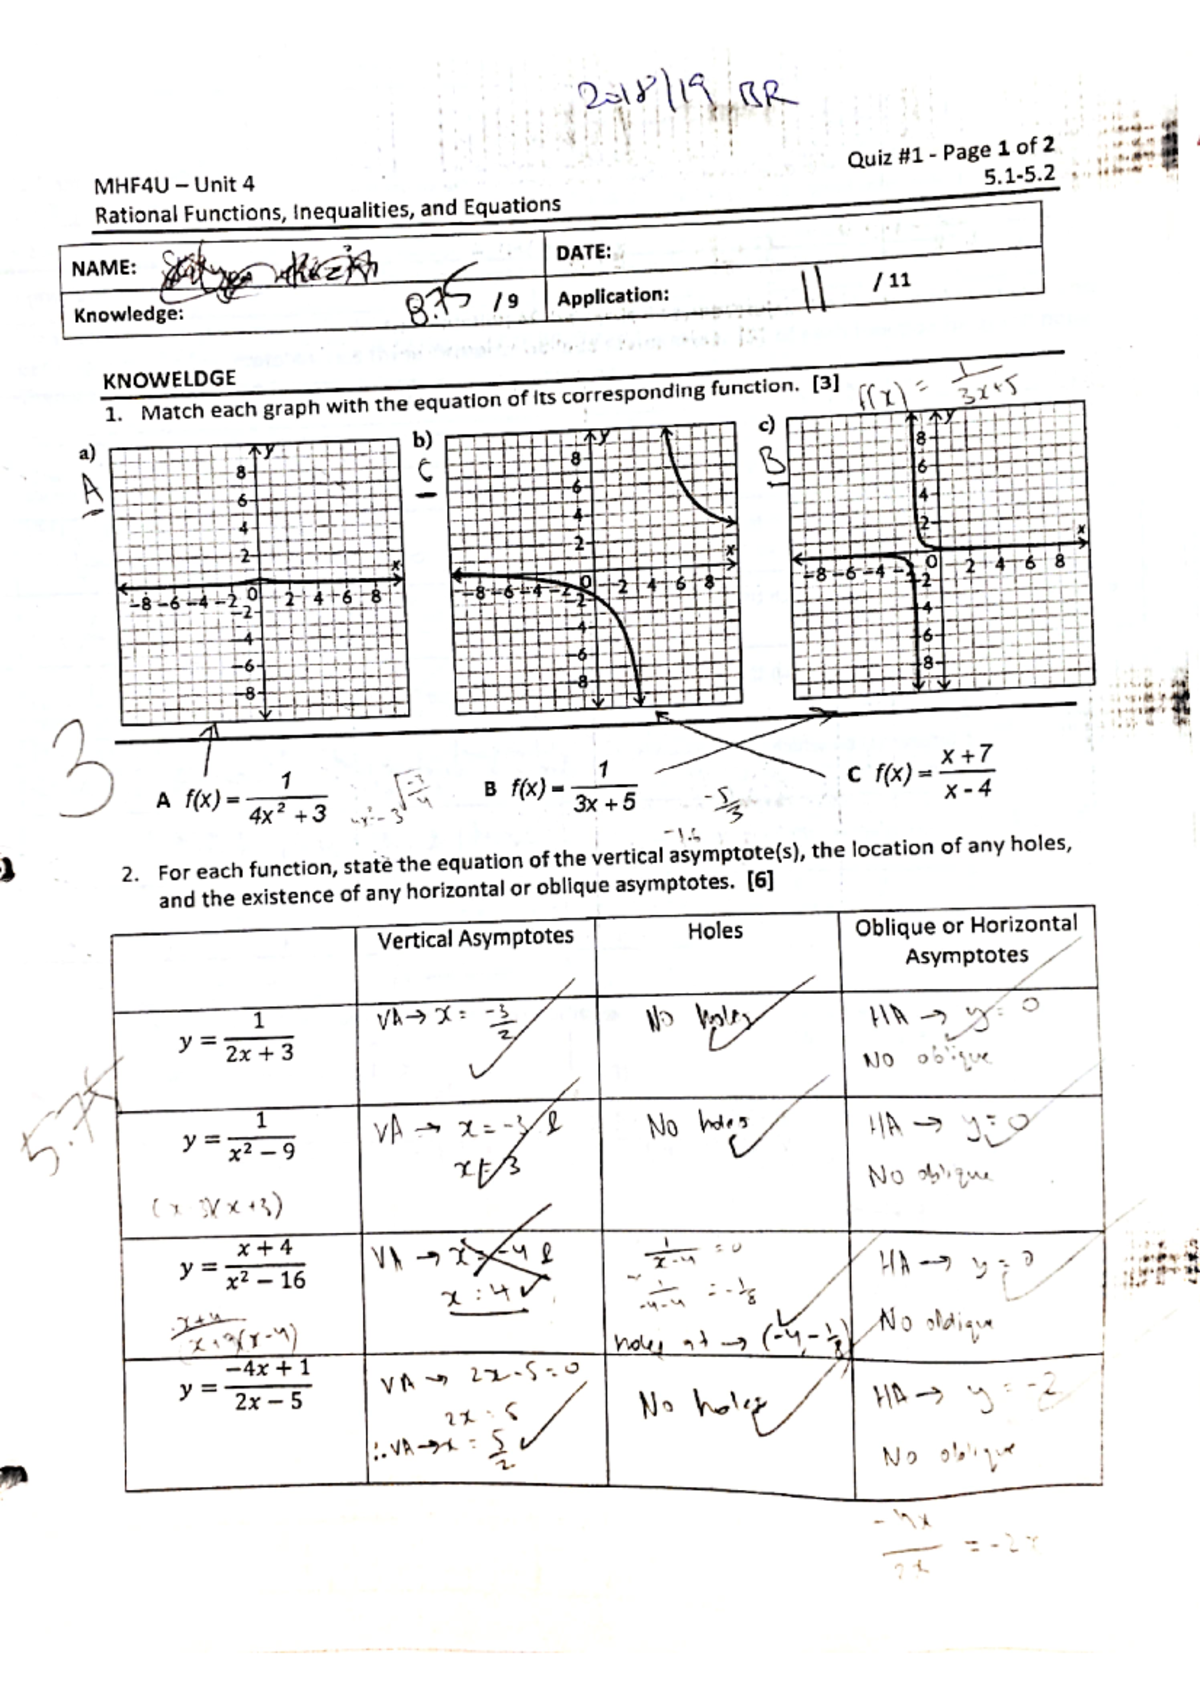 2018/19 BR
Quiz #1 - Page 1 of 2
MHF4U – Unit 4
5.1-5.2
Rational Functions, Inequalities, and Equations
NAME:
DATE:
Knowledge: 8.75 / 9
Application: 11 / 11
KNOWELDGE
1. Match each graph with the equation of its corresponding function. [3]
f(x) = 1/(3x+5)
a) A
b) C
c) B
y 8 6 4 2 x -8 -6 -4 -2 0 2 4 6 8 -2 -4 -6 -8
y 8 6 4 2 x -8 -6 -4 -2 0 2 4 6 8 -2 -4 -6 -8
y 8 6 4 2 x -8 -6 -4 -2 0 2 4 6 8 -2 -4 -6 -8
3
A f(x) = 1/(4x² + 3)
B f(x) = 1/(3x + 5)
C f(x) = (x + 7)/(x - 4)
√(-3/4)
-5/3
-1.6
2. For each function, state the equation of the vertical asymptote(s), the location of any holes,
and the existence of any horizontal or oblique asymptotes. [6]
Vertical Asymptotes
Holes
Oblique or Horizontal
Asymptotes
y = 1/(2x + 3)
VA → x = -3/2
No holes
HA → y = 0
No oblique
5.75
y = 1/(x² – 9)
(x 3)(x+3)
VA → x = -3 &
x = 3
No holes
HA → y = 0
No oblique
y = (x + 4)/(x² – 16)
VA → x = -4 &
x = 4
1/(x-4) = 0
1/(-4-4) = -1/8
holes at → (-4, -1/8)
HA → y = 0
No oblique
y = (–4x + 1)/(2x – 5)
VA → 2x-5=0
2x = 5
∴ VA → x = 5/2
No holes
HA → y = -2
No oblique
-4x/2x = -2